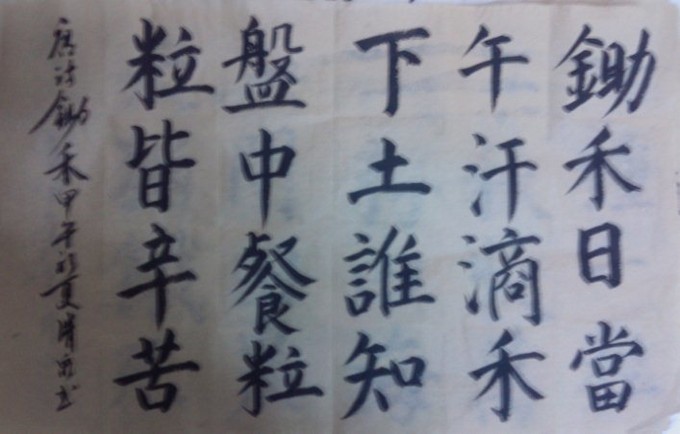 鋤禾日當
午汗滴禾
下土誰知
盤中餐粒
粒皆辛苦
唐詩鋤禾甲午初夏清泉书